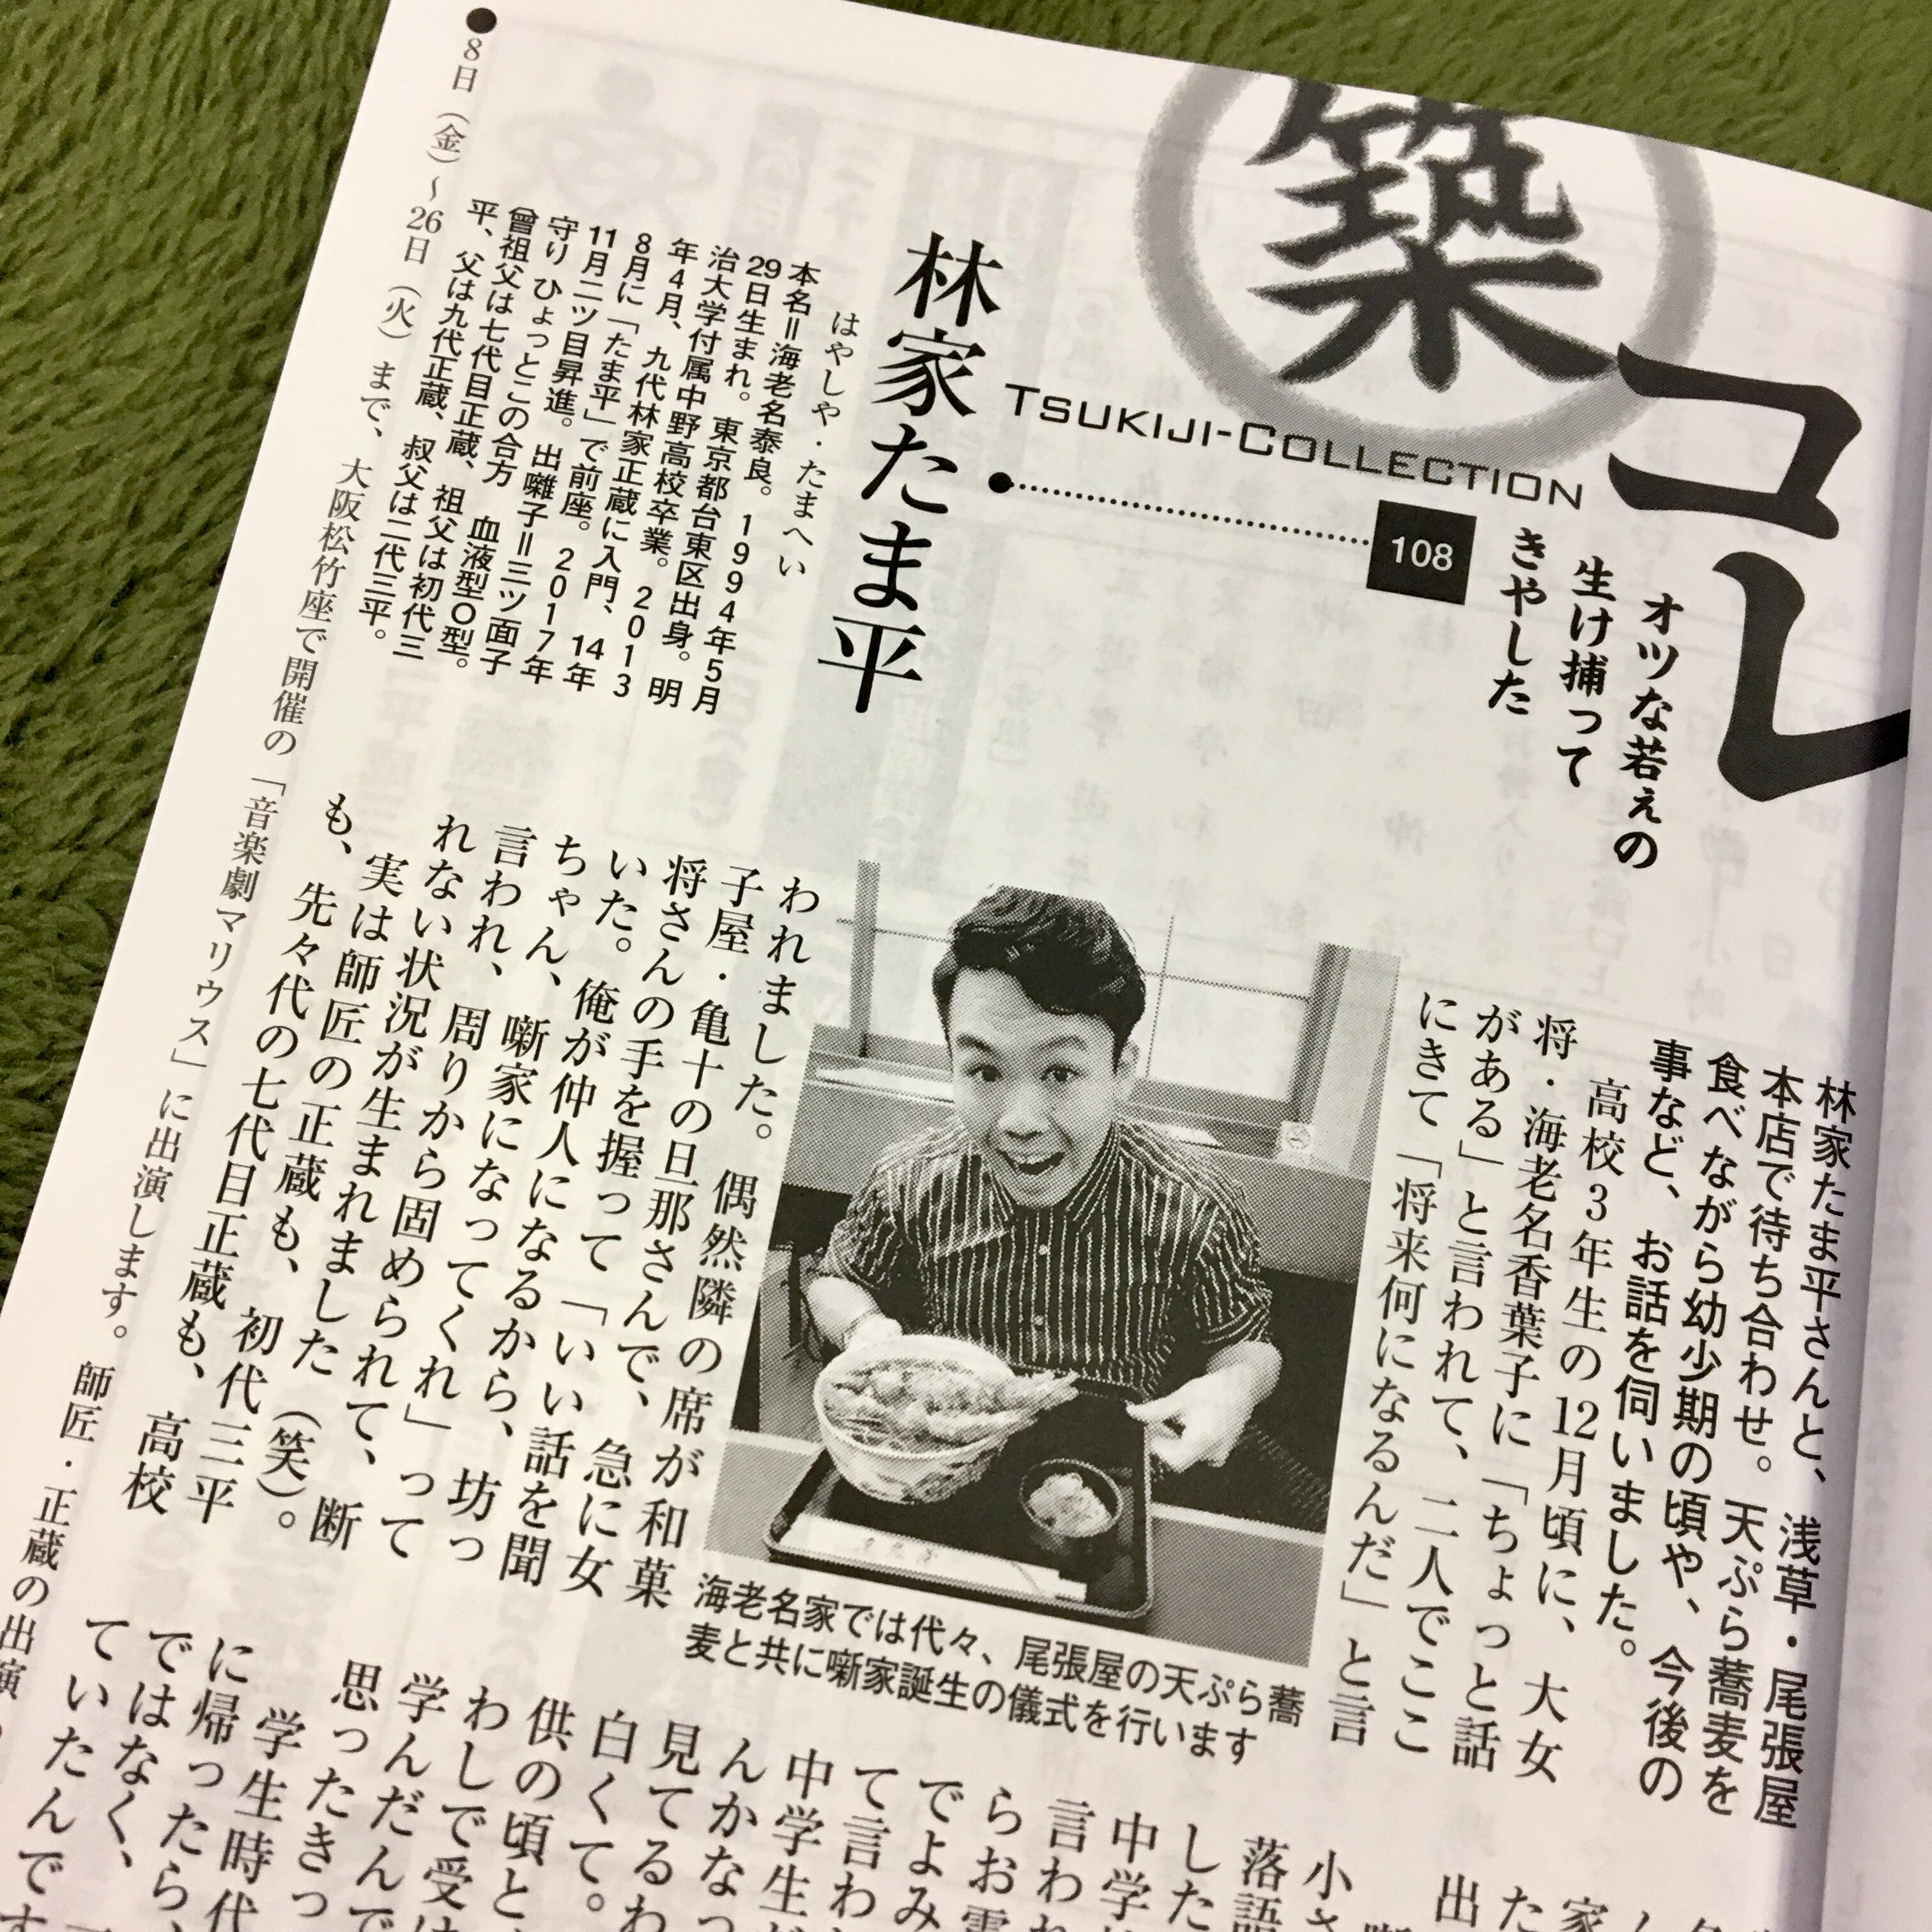 築
コレ
TSUKIJI-COLLECTION
108
オツな若ぇの
生け捕って
きやした
林家たま平
はやしや・たまへい
本名＝海老名泰良。1994年5月
29日生まれ。東京都台東区出身。明
治大学付属中野高校卒業。2013
年4月、九代林家正蔵に入門、14年
8月に「たま平」で前座。2017年
11月二ツ目昇進。出囃子＝三ツ面子
守り ひょっとこの合方　血液型O型。
曾祖父は七代目正蔵、祖父は初代三
平、父は九代正蔵、叔父は二代三平。
林家たま平さんと、浅草・尾張屋
本店で待ち合わせ。天ぷら蕎麦を
食べながら幼少期の頃や、今後の
事など、お話を伺いました。
高校3年生の12月頃に、大女
将・海老名香葉子に「ちょっと話
がある」と言われて、二人でここ
にきて「将来何になるんだ」と言
われました。偶然隣の席が和菓
子屋・亀十の旦那さんで、急に女
将さんの手を握って「いい話を聞
いた。俺が仲人になるから、坊っ
ちゃん、噺家になってくれ」って
言われ、周りから固められて、断
れない状況が生まれました（笑）。
実は師匠の正蔵も、初代三平
も、先々代の七代目正蔵も、高校
海老名家では代々、尾張屋の天ぷら蕎
麦と共に噺家誕生の儀式を行います
小さ
落語
した
中学
言われ
らお
でよみ
て言わ
中学生
んかなっ
見てるわ
白くて。
供の頃と
わしで受
学んだんで
思ったきっ
学生時代
に帰ったら、
ではなく、
ていたんです
●8日（金）〜26日（火）まで、大阪松竹座で開催の「音楽劇マリウス」に出演します。師匠・正蔵の出演